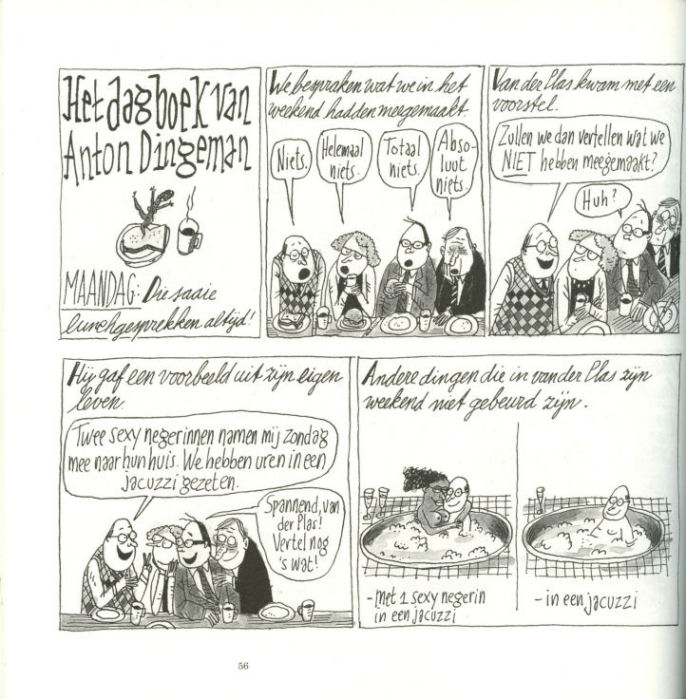 Het dagboek van
Anton Dingeman
MAANDAG: Die saaie
lunchgesprekken altijd!
We bespraken wat we in het
weekend hadden meegemaakt.
Niets.
Helemaal
niets.
Totaal
niets.
Abso-
luut
niets.
Van der Plas kwam met een
voorstel.
Zullen we dan vertellen wat we
NIET hebben meegemaakt?
Huh?
Hij gaf een voorbeeld uit zijn eigen
leven.
Twee sexy negerinnen namen mij zondag
mee naar hun huis. We hebben uren in een
jacuzzi gezeten.
Spannend, van
der Plas!
Vertel nog
's wat!
Andere dingen die in van der Plas zijn
weekend niet gebeurd zijn.
- met 1 sexy negerin
in een jacuzzi
- in een jacuzzi
56